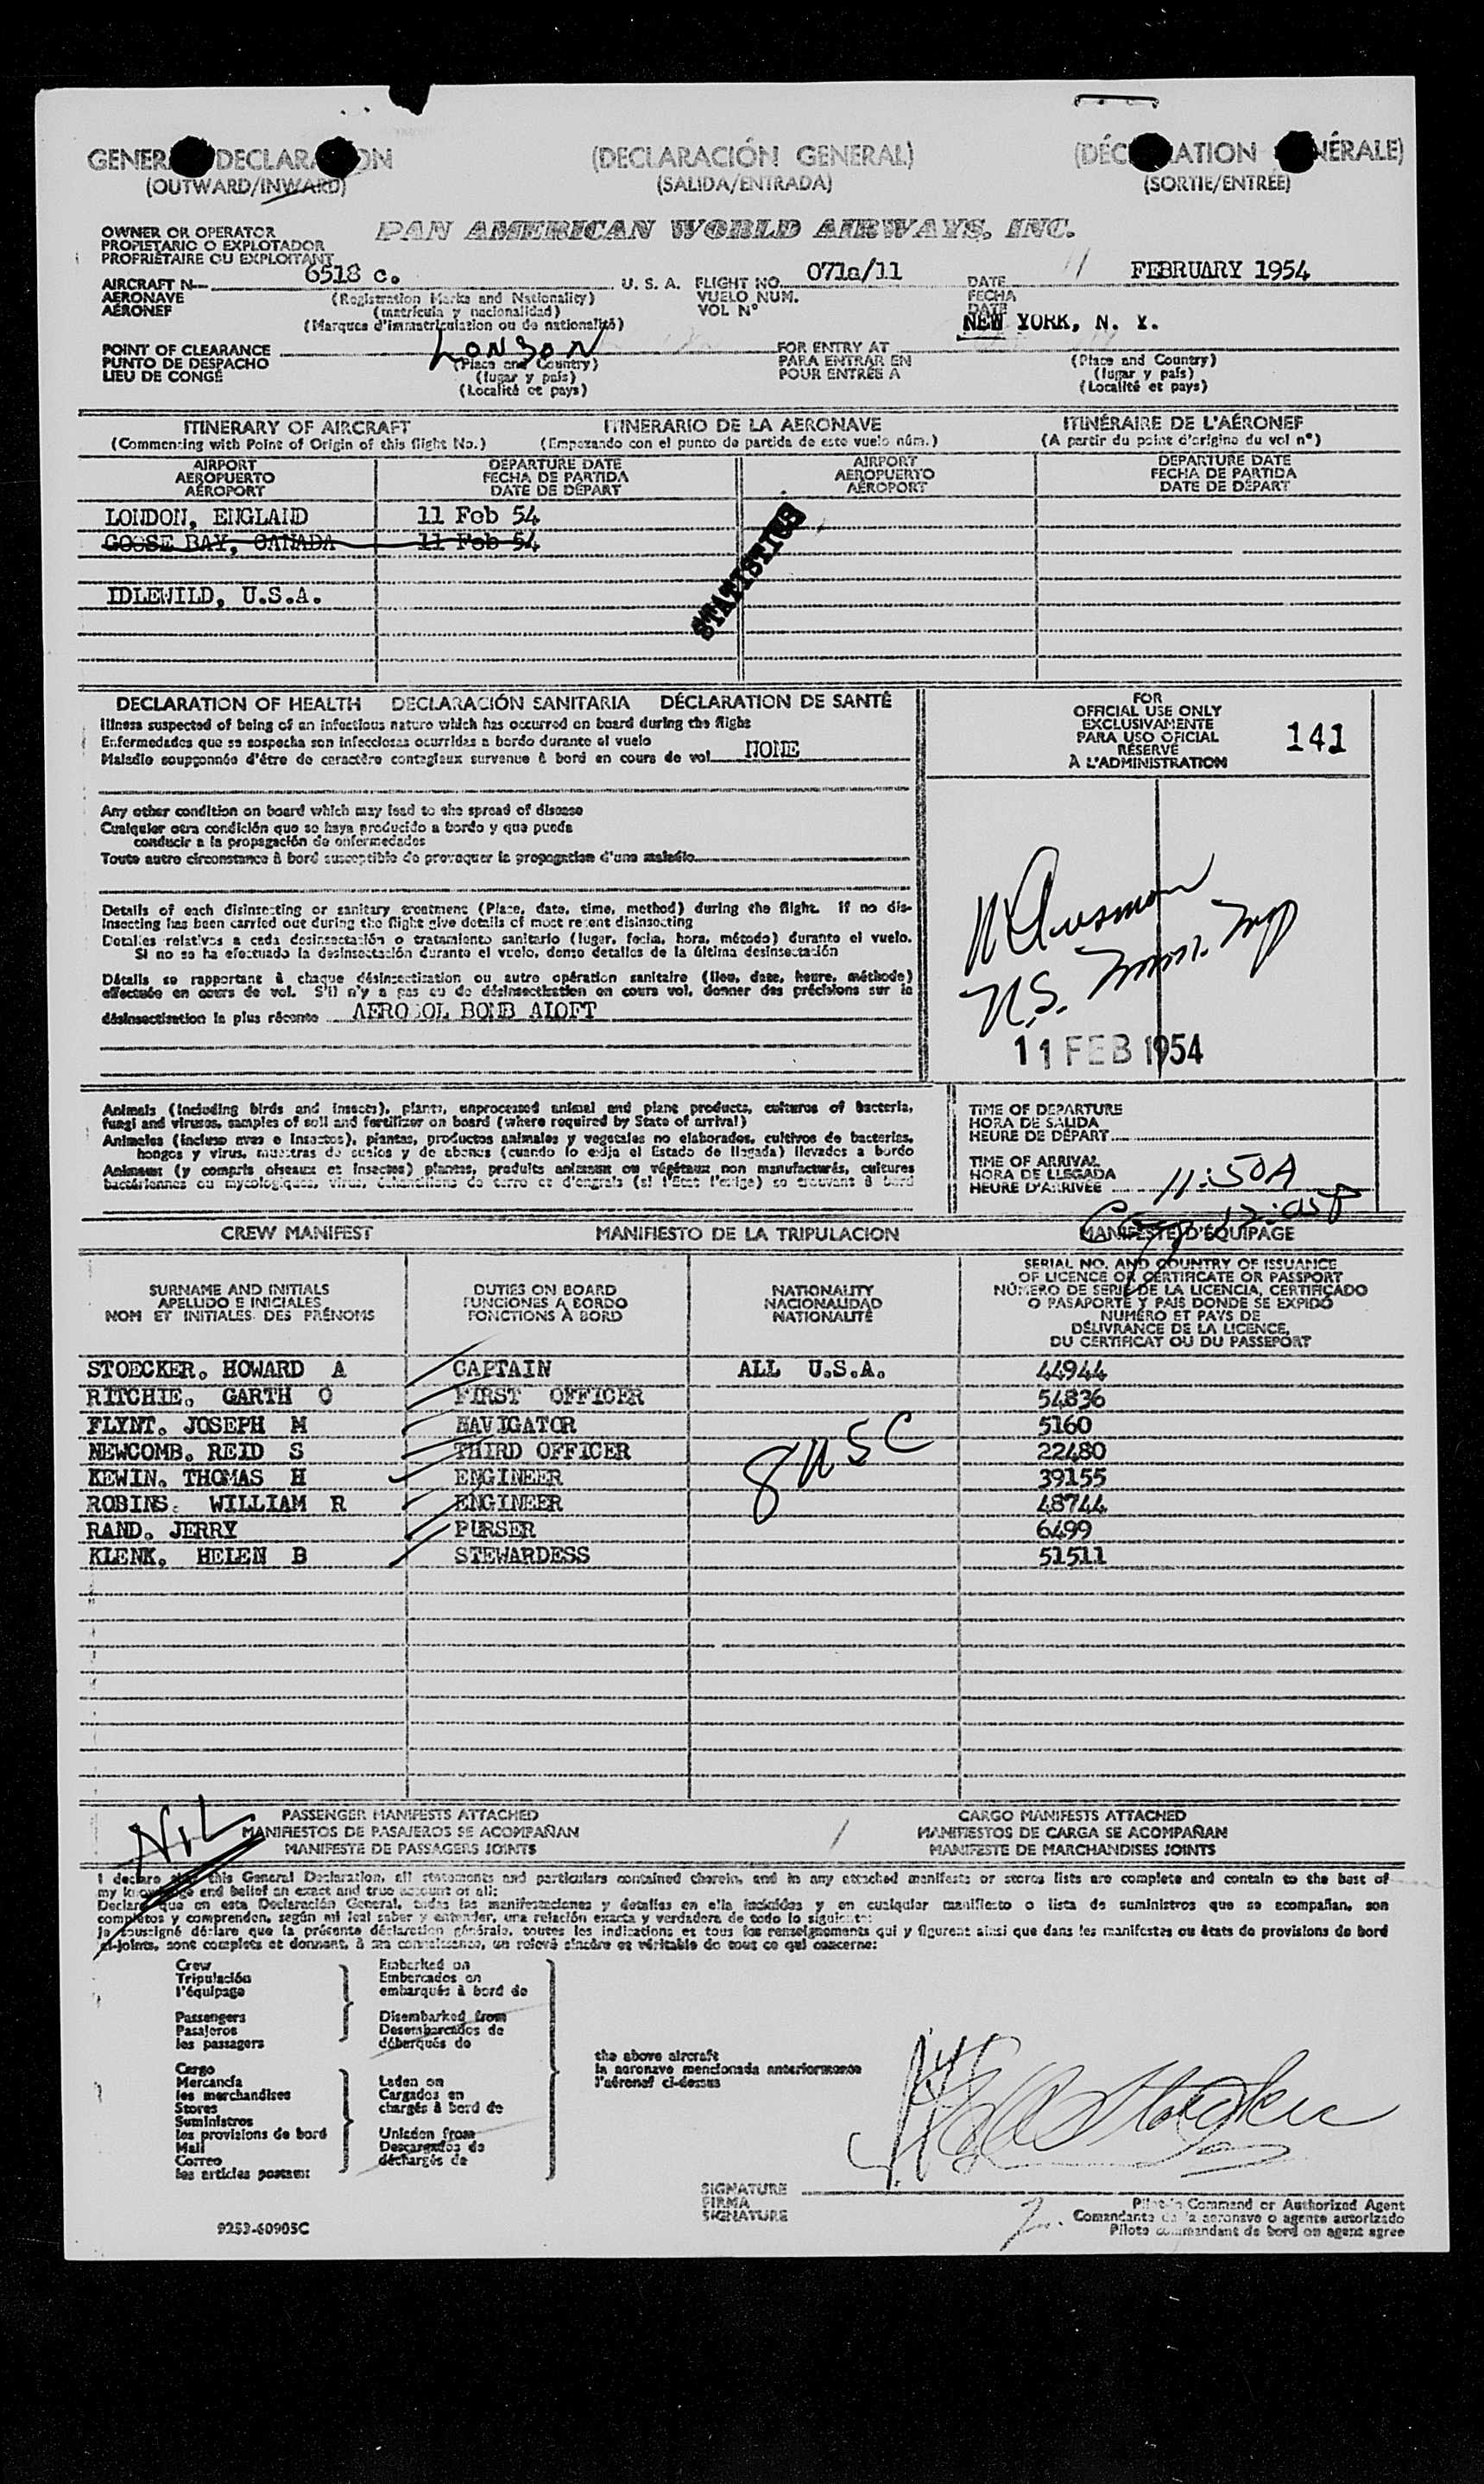 GENERAL DECLARATION (DECLARACIÓN GENERAL) (DÉCLARATION GÉNÉRALE)
(OUTWARD/INWARD) (SALIDA/ENTRADA) (SORTIE/ENTRÉE)
OWNER OR OPERATOR PAN AMERICAN WORLD AIRWAYS, INC.
PROPIETARIO O EXPLOTADOR
PROPRIÉTAIRE OU EXPLOITANT
AIRCRAFT N 6518 C. U. S. A. FLIGHT NO. 071a/11 DATE 11 FEBRUARY 1954
AERONAVE (Registration Marks and Nationality) VUELO NUM. FECHA
AÉRONEF (matrícula y nacionalidad) VOL Nº DATE
(Marques d'immatriculation ou de nationalité) NEW YORK, N. Y.
POINT OF CLEARANCE LONDON FOR ENTRY AT
PUNTO DE DESPACHO (Place and Country) PARA ENTRAR EN (Place and Country)
LIEU DE CONGÉ (lugar y país) POUR ENTRÉE A (lugar y país)
(Localité et pays) (Localité et pays)
ITINERARY OF AIRCRAFT ITINERARIO DE LA AERONAVE ITINÉRAIRE DE L'AÉRONEF
(Commencing with Point of Origin of this flight No.) (Empezando con el punto de partida de este vuelo núm.) (A partir du point d'origine du vol nº)
AIRPORT DEPARTURE DATE AIRPORT DEPARTURE DATE
AEROPUERTO FECHA DE PARTIDA AEROPUERTO FECHA DE PARTIDA
AÉROPORT DATE DE DÉPART AÉROPORT DATE DE DÉPART
LONDON, ENGLAND 11 Feb 54
GOOSE BAY, CANADA 11 Feb 54
STATISTICS
IDLEWILD, U.S.A.
DECLARATION OF HEALTH DECLARACIÓN SANITARIA DÉCLARATION DE SANTÉ
Illness suspected of being of an infectious nature which has occurred on board during the flight
Enfermedades que se sospecha son infecciosas ocurridas a bordo durante el vuelo
Maladie soupçonnée d'être de caractère contagieux survenue à bord en cours de vol NONE
FOR
OFFICIAL USE ONLY
EXCLUSIVAMENTE 141
PARA USO OFICIAL
RÉSERVÉ
À L'ADMINISTRATION
Any other condition on board which may lead to the spread of disease
Cualquier otra condición que se haya producido a bordo y que pueda
conducir a la propagación de enfermedades
Toute autre circonstance à bord susceptible de provoquer la propagation d'une maladie
Details of each disinsecting or sanitary treatment (Place, date, time, method) during the flight. If no dis-
insecting has been carried out during the flight give details of most recent disinsecting
Detalles relativos a cada desinsectación o tratamiento sanitario (lugar, fecha, hora, método) durante el vuelo.
Si no se ha efectuado la desinsectación durante el vuelo, dense detalles de la última desinsectación
Détails se rapportant à chaque désinsectisation ou autre opération sanitaire (lieu, date, heure, méthode)
effectuée en cours de vol. S'il n'y a pas eu de désinsectisation en cours vol, donner des précisions sur la
désinsectisation la plus récente AEROSOL BOMB ALOFT
11 FEB 1954
Animals (including birds and insects), plants, unprocessed animal and plant products, cultures of bacteria,
fungi and viruses, samples of soil and fertilizer on board (where required by State of arrival)
Animales (incluso aves e insectos), plantas, productos animales y vegetales no elaborados, cultivos de bacterias,
hongos y virus, muestras de suelos y de abonos (cuando lo exija el Estado de llegada) llevados a bordo
Animaux (y compris oiseaux et insectes) plantes, produits animaux ou végétaux non manufacturés, cultures
bactériennes ou mycologiques, virus, échantillons de terre et d'engrais (si l'État l'exige) se trouvant à bord
TIME OF DEPARTURE
HORA DE SALIDA
HEURE DE DÉPART
TIME OF ARRIVAL
HORA DE LLEGADA 11:50A
HEURE D'ARRIVÉE
CREW MANIFEST MANIFIESTO DE LA TRIPULACION MANIFESTE D'ÉQUIPAGE
SURNAME AND INITIALS DUTIES ON BOARD NATIONALITY SERIAL NO. AND COUNTRY OF ISSUANCE
APELLIDO E INICIALES FUNCIONES A BORDO NACIONALIDAD OF LICENCE OR CERTIFICATE OR PASSPORT
NOM ET INITIALES DES PRÉNOMS FONCTIONS À BORD NATIONALITÉ NÚMERO DE SERIE DE LA LICENCIA, CERTIFICADO
O PASAPORTE Y PAIS DONDE SE EXPIDÓ
NUMÉRO ET PAYS DE
DÉLIVRANCE DE LA LICENCE,
DU CERTIFICAT OU DU PASSEPORT
STOECKER, HOWARD A CAPTAIN ALL U.S.A. 44944
RITCHIE, GARTH O FIRST OFFICER 54836
FLYNT, JOSEPH M NAVIGATOR 5160
NEWCOMB, REID S THIRD OFFICER 8 USC 22480
KEWIN, THOMAS H ENGINEER 39155
ROBINS, WILLIAM R ENGINEER 48744
RAND, JERRY PURSER 6499
KLENK, HELEN B STEWARDESS 51511
NIL PASSENGER MANIFESTS ATTACHED CARGO MANIFESTS ATTACHED
MANIFIESTOS DE PASAJEROS SE ACOMPAÑAN / MANIFIESTOS DE CARGA SE ACOMPAÑAN
MANIFESTE DE PASSAGERS JOINTS MANIFESTE DE MARCHANDISES JOINTS
I declare that this General Declaration, all statements and particulars contained therein, and in any attached manifests or stores lists are complete and contain to the best of
my knowledge and belief an exact and true account of all:
Declaro que en esta Declaración General, todas las manifestaciones y detalles en ella incluidos y en cualquier manifiesto o lista de suministros que se acompañan, son
completos y comprenden, según mi leal saber y entender, una relación exacta y verdadera de todo lo siguiente:
Je soussigné déclare que la présente déclaration générale, toutes les indications et tous les renseignements qui y figurent ainsi que dans les manifestes ou états de provisions de bord
ci-joints, sont complets et donnent, à ma connaissance, un relevé sincère et véritable de tous ce qui concerne:
Crew Embarked on
Tripulación Embarcados en
l'équipage embarqués à bord de
Passengers Disembarked from
Pasajeros Desembarcados de
les passagers débarqués de
the above aircraft
la aeronave mencionada anteriormente
l'aéronef ci-dessus
Cargo
Mercancía Laden on
les merchandises Cargados en
Stores chargés à bord de
Suministros
les provisions de bord Unladen from
Mail Descargados de
Correo déchargés de
les articles postaux
SIGNATURE
FIRMA
SIGNATURE
Pilot in Command or Authorized Agent
Comandante de la aeronave o agente autorizado
Pilote commandant de bord ou agent agree
9253-60905C